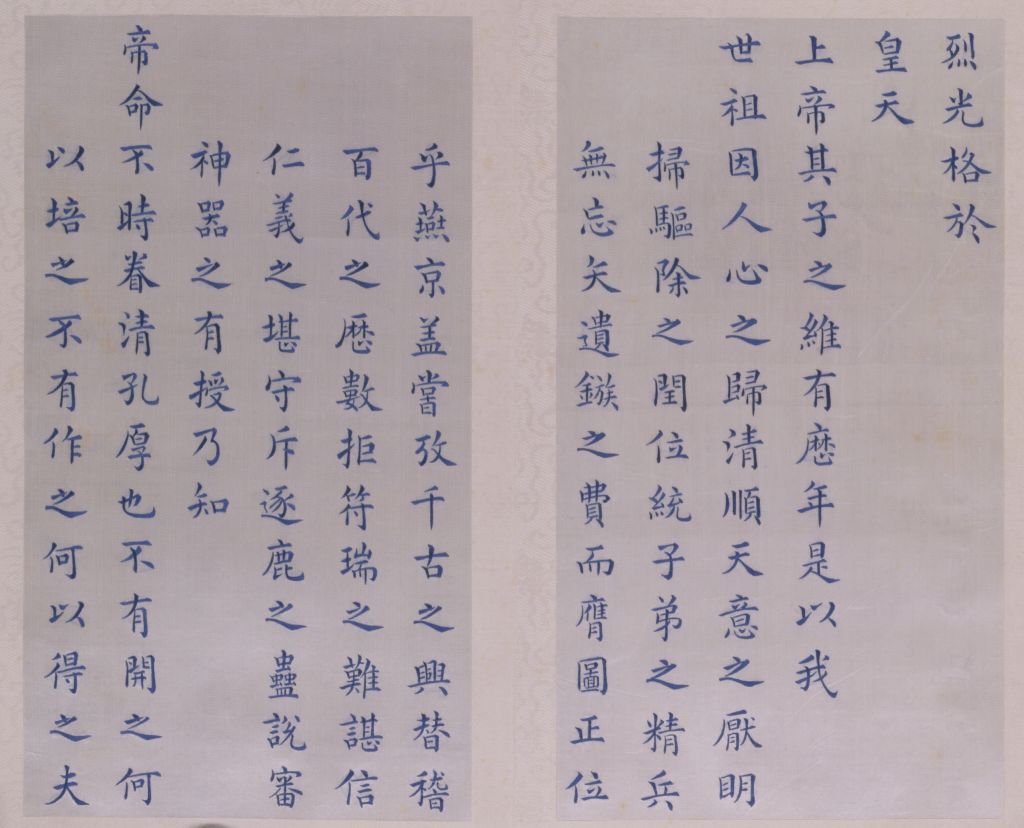 烈光格於
皇天
上帝其子之維有厯年是以我
世祖因人心之歸清順天意之厭明
掃驅除之閏位統子弟之精兵
無忘矢遺鏃之費而膺圖正位
乎燕京盖嘗攷千古之興替稽
百代之厯數拒符瑞之難諶信
仁義之堪守斥逐鹿之蠱說審
神器之有授乃知
帝命不時眷清孔厚也不有開之何
以培之不有作之何以得之夫